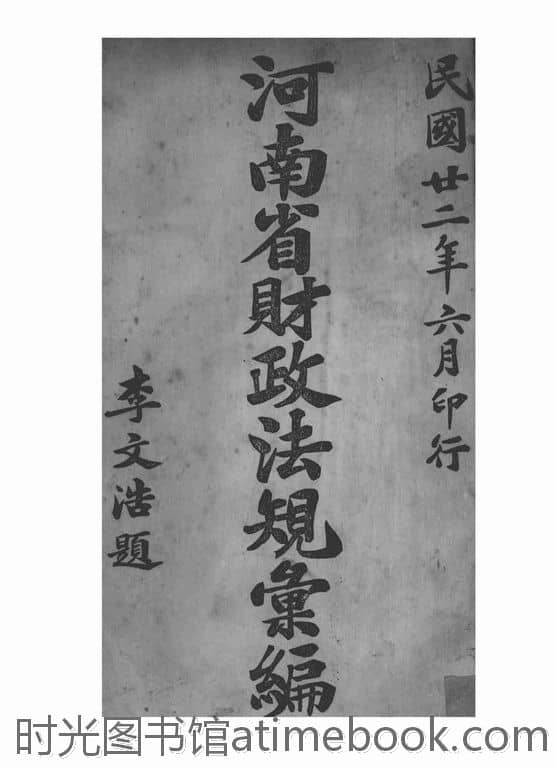 民國廿二年六月印行
河南省財政法規彙編
李文浩題
时光图书馆atimebook.com